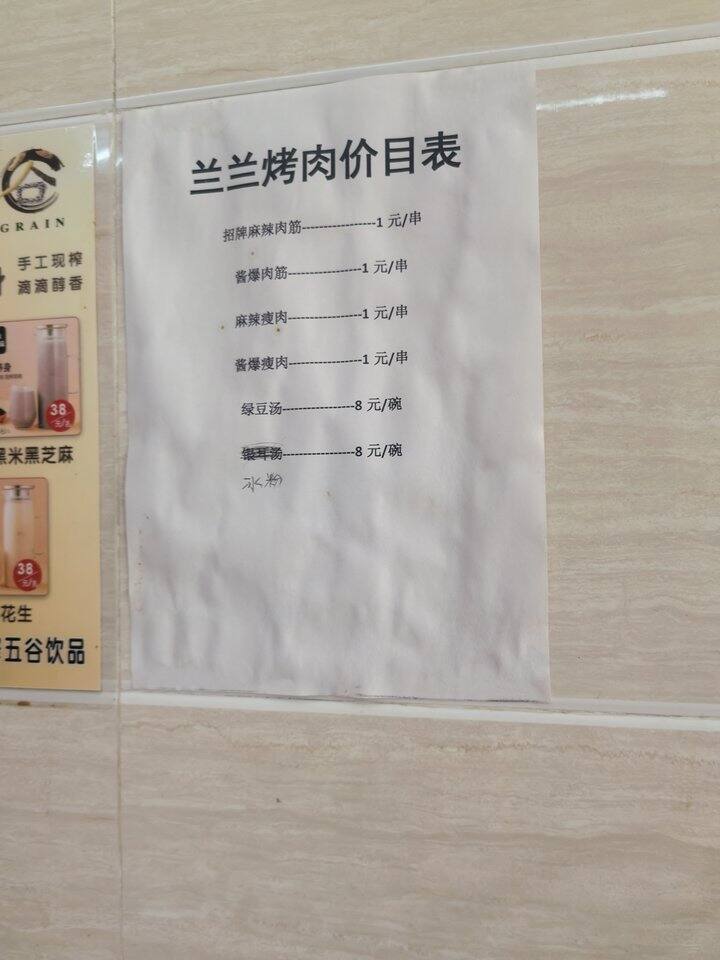 兰兰烤肉价目表
招牌麻辣肉筋----------------1 元/串
酱爆肉筋----------------1 元/串
麻辣瘦肉----------------1 元/串
酱爆瘦肉----------------1 元/串
绿豆汤----------------8 元/碗
银耳汤----------------8 元/碗
冰粉
谷
GRAIN
手工现榨
滴滴醇香
38
元/扎
黑米黑芝麻
38
元/扎
花生
五谷饮品